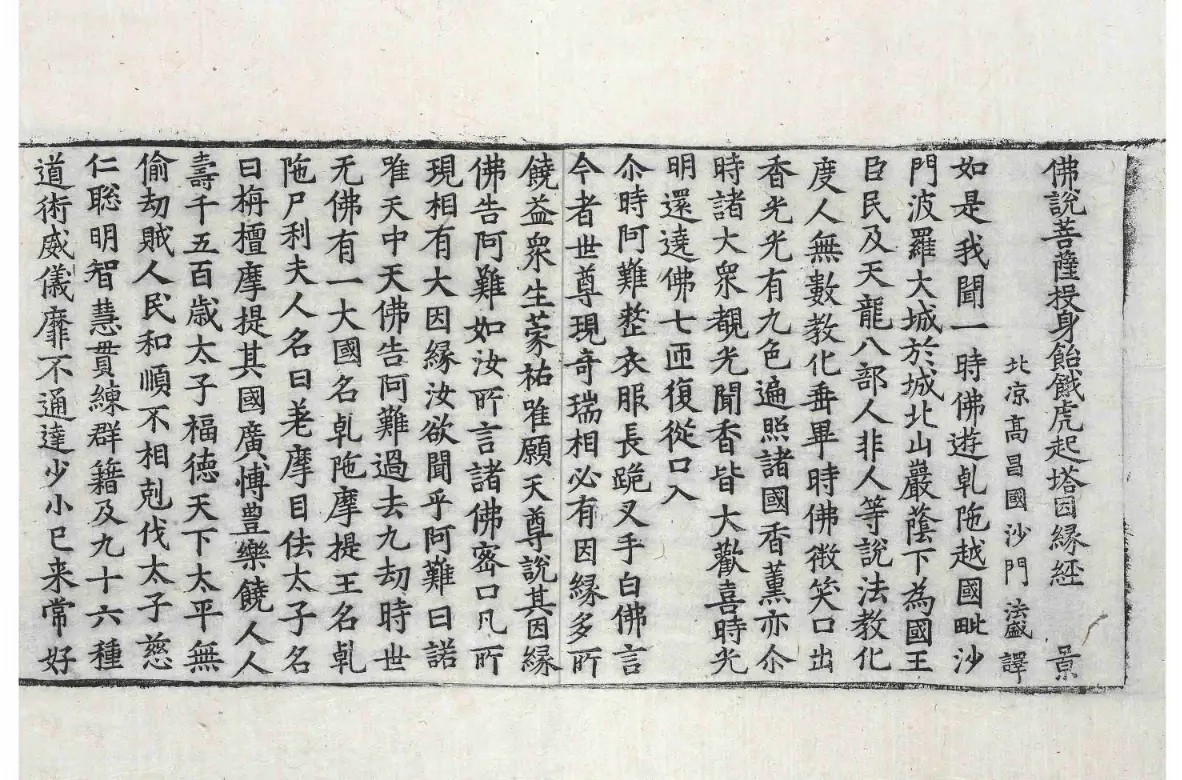 佛說菩薩投身飴餓虎起塔因緣經 景
北涼高昌國沙門 法盛 譯
如是我聞一時佛遊乹陁越國毗沙
門波羅大城於城北山巖蔭下為國王
臣民及天龍八部人非人等說法教化
度人無數教化垂畢時佛微笑口出
香光光有九色遍照諸國香薰亦尒
時諸大衆覩光聞香皆大歡喜時光
明還遶佛七匝復從口入
尒時阿難整衣服長跪叉手白佛言
今者世尊現奇瑞相必有因緣多所
饒益衆生蒙祐唯願天尊說其因緣
佛告阿難如汝所言諸佛密口凡所
現相有大因緣汝欲聞乎阿難曰諾
唯天中天佛告阿難過去九劫時世
无佛有一大國名乹陁摩提王名乹
陁尸利夫人名曰差摩目佉太子名
曰栴檀摩提其國廣博豊樂饒人人
壽千五百歲太子福德天下太平無
偷劫賊人民和順不相剋伐太子慈
仁聡明智慧貫練群籍及九十六種
道術威儀靡不通達少小已来常好